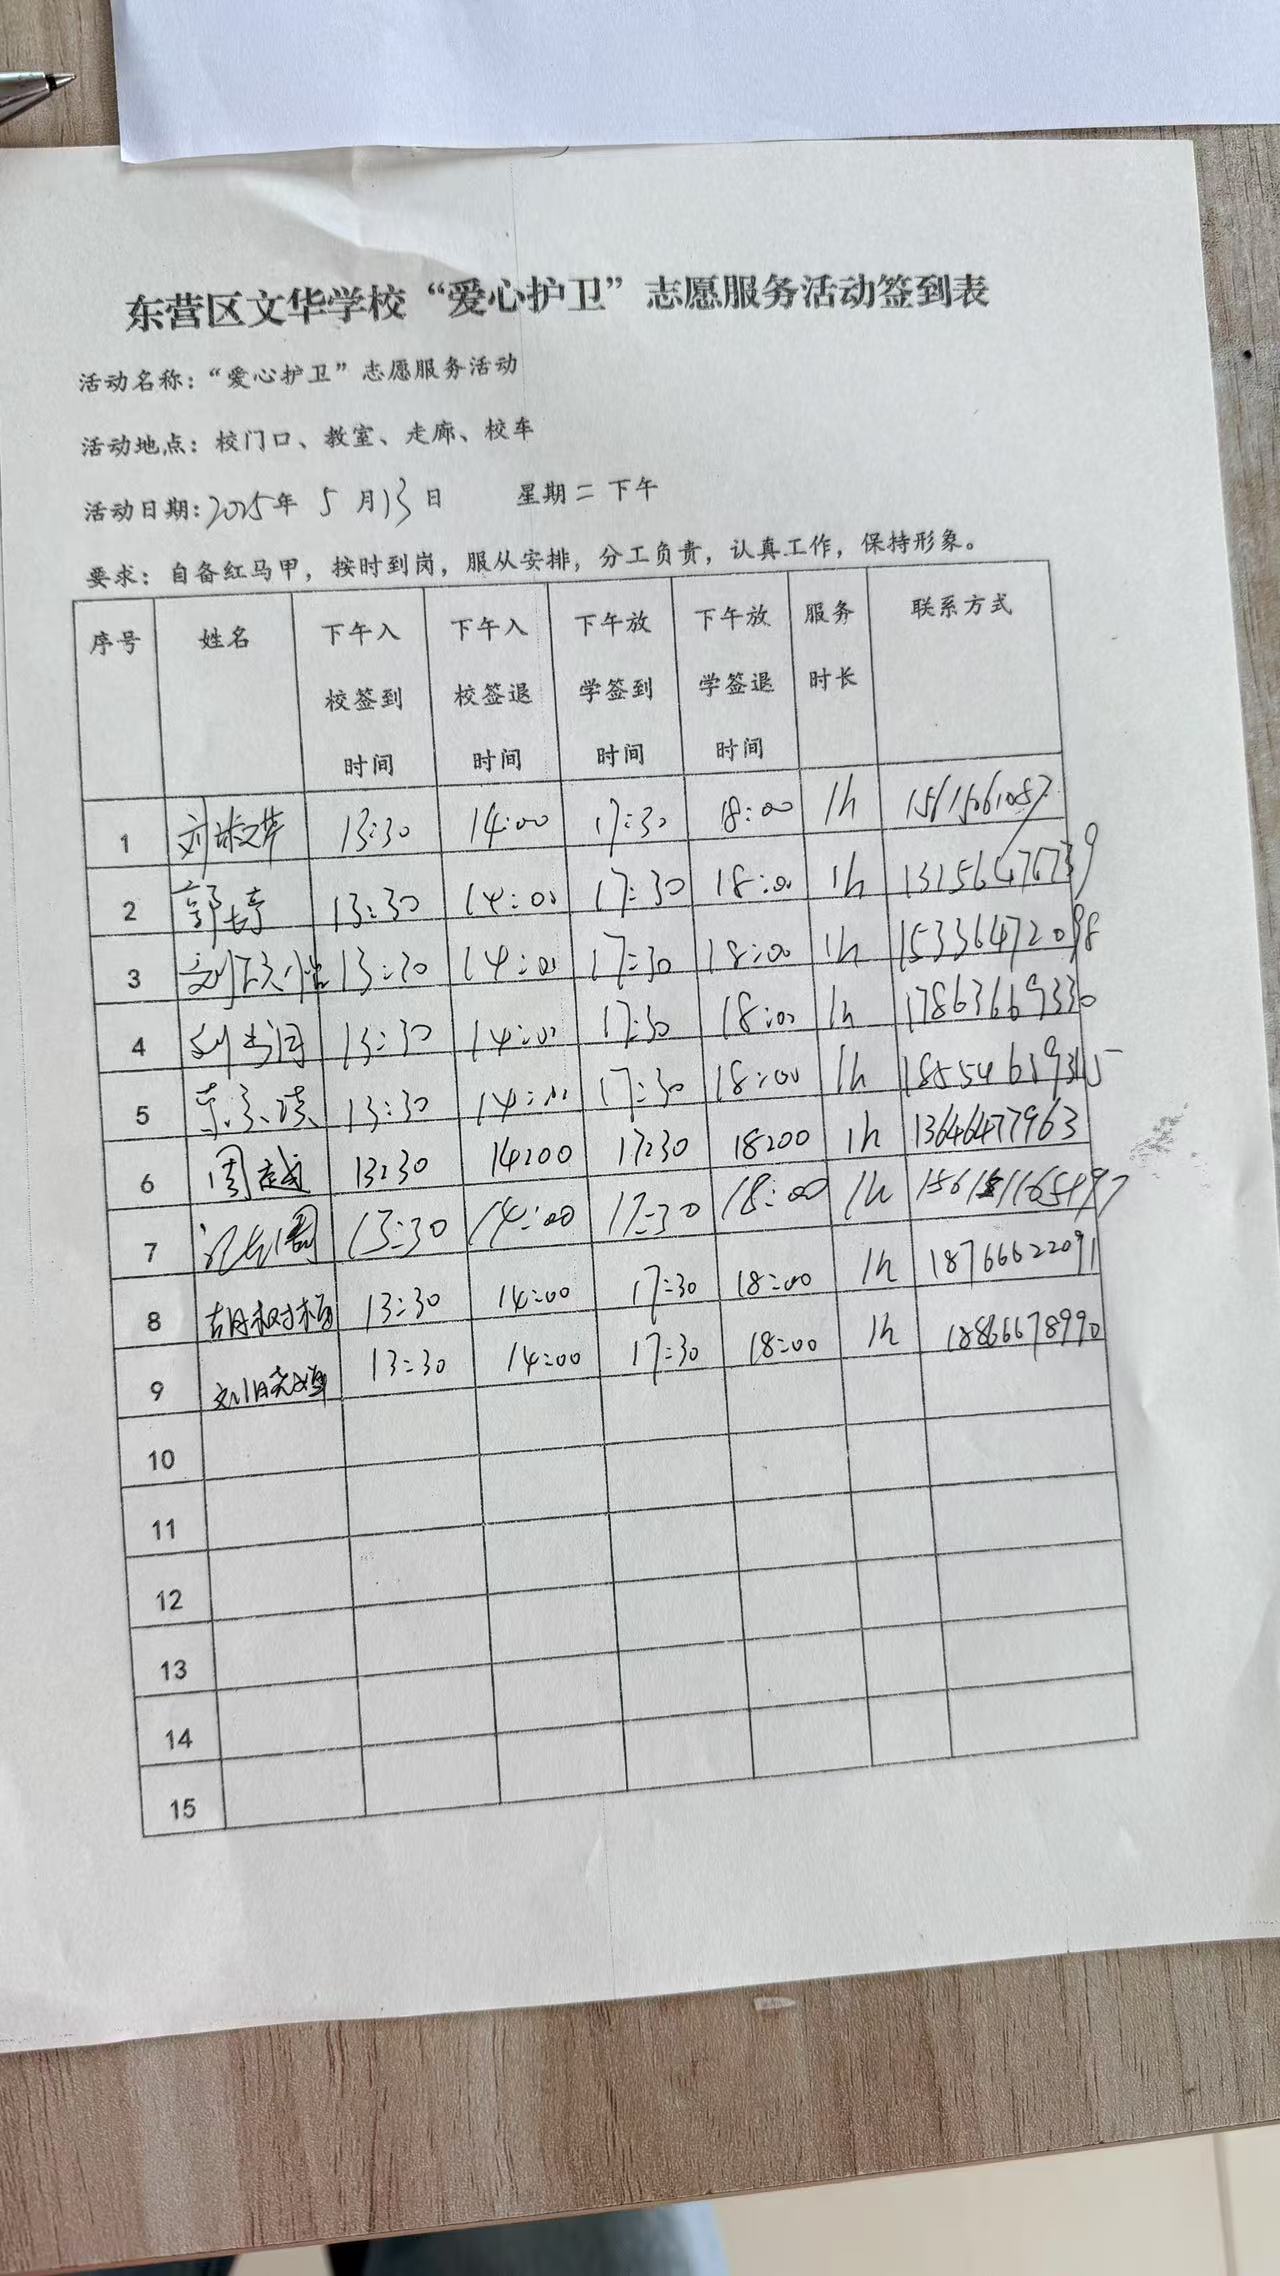 东营区文华学校“爱心护卫”志愿服务活动签到表
活动名称：“爱心护卫”志愿服务活动
活动地点：校门口、教室、走廊、校车
活动日期：2025年 5 月13日 星期二 下午
要求：自备红马甲，按时到岗，服从安排，分工负责，认真工作，保持形象。
序号 姓名 下午入校签到时间 下午入校签退时间 下午放学签到时间 下午放学签退时间 服务时长 联系方式
1 13:30 14:00 17:30 18:00 1h 15615061057
2 郭婷 13:30 14:00 17:30 18:00 1h 13156476739
3 13:30 14:00 17:30 18:00 1h 15336472098
4 13:30 14:00 17:30 18:00 1h 17863669330
5 13:30 14:00 17:30 18:00 1h
6 周越 13:30 14:00 17:30 18:00 1h 13646477963
7 13:30 14:00 17:30 18:00 1h
8 胡树梅 13:30 14:00 17:30 18:00 1h 18766622091
9 13:30 14:00 17:30 18:00 1h 18866678990
10
11
12
13
14
15